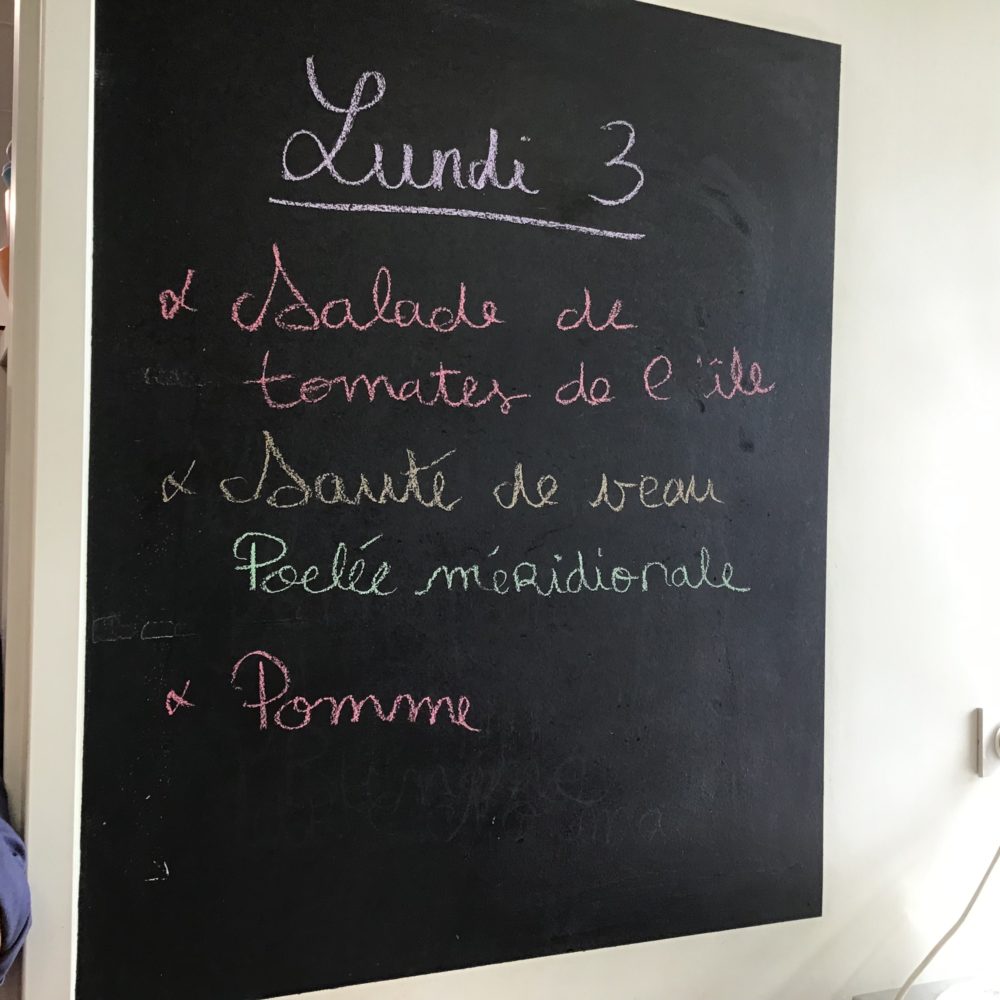 Lundi 3
Salade de
tomates de l'île
Sauté de veau
Poelée méridionale
Pomme